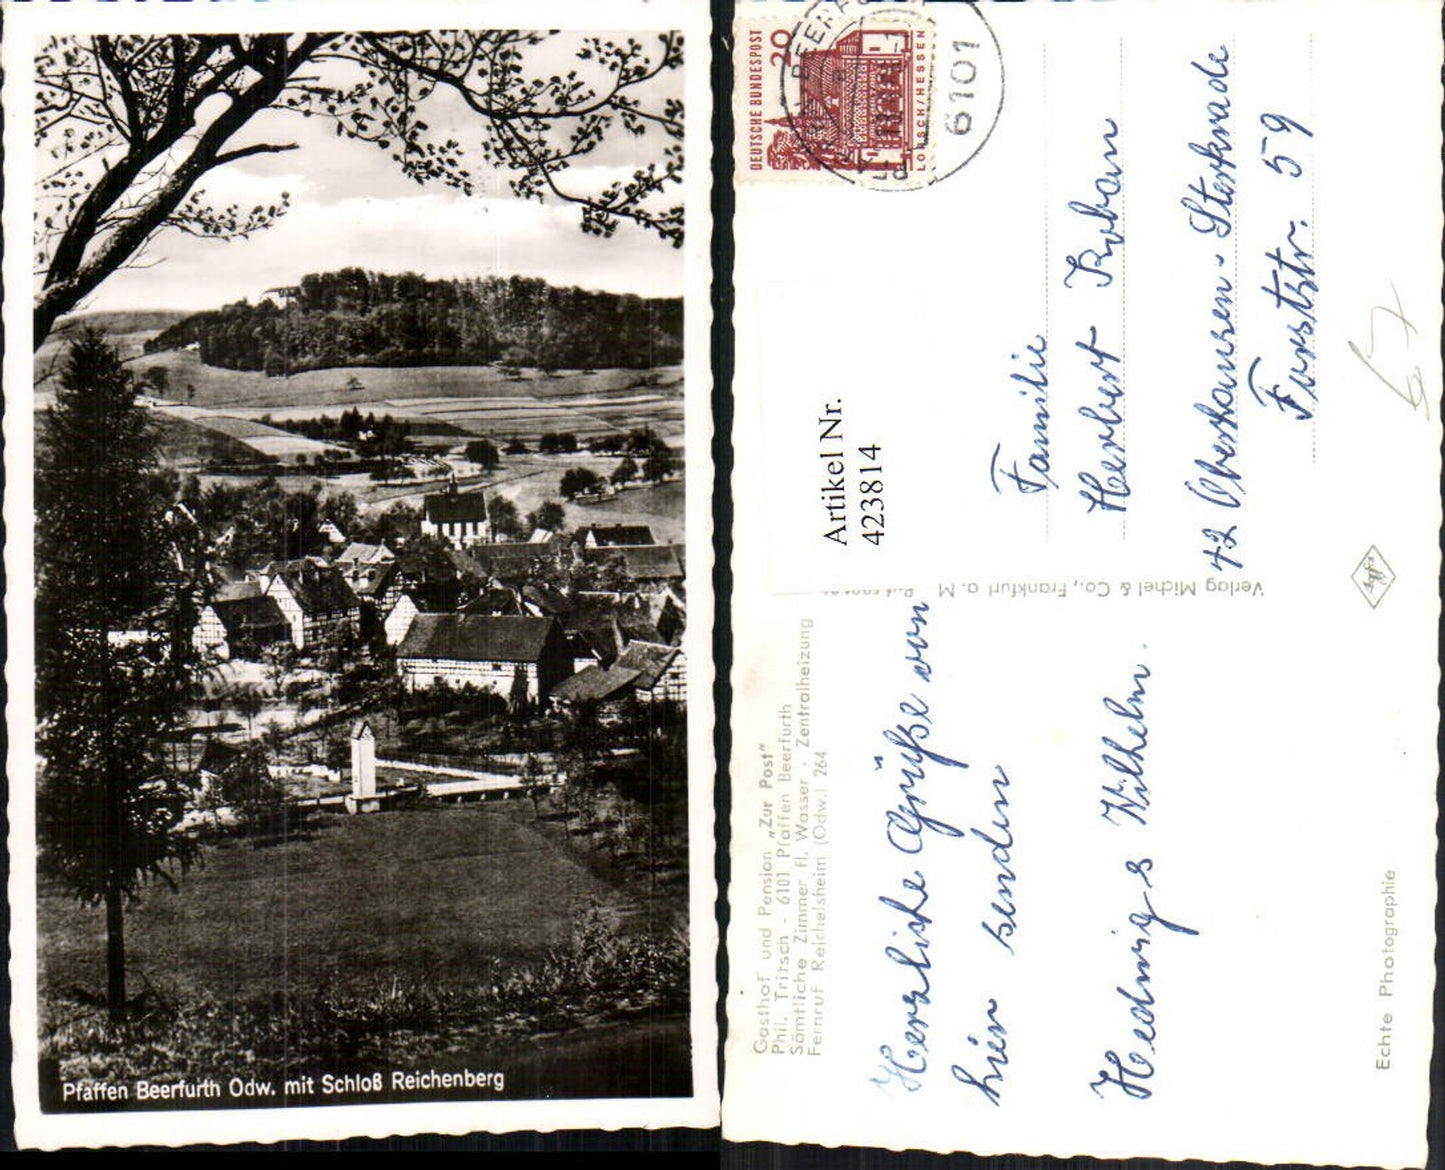 Pfaffen Beerfurth Odw. mit Schloß Reichenberg
DEUTSCHE BUNDESPOST
20
LORSCH/HESSEN
6101
Artikel Nr.
423814
Gasthof und Pension „Zur Post“
Phil. Tritsch - 6101 Pfaffen Beerfurth
Sämtliche Zimmer fl. Wasser - Zentralheizung
Fernruf Reichelsheim (Odw.) 264
Herzliche Grüße von
hier senden
Hedwig & Wilhelm.
Verlag Michel & Co., Frankfurt a. M
Familie
Herbert Koban
42 Oberhausen-Sterkrade
Forststr. 59
Agfa
Echte Photographie